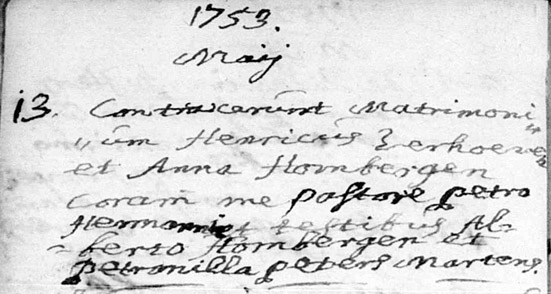 1753.
Maij
13. Contraxerunt Matrimoni„
„um Henricus Zerhoeven
et Anna Hombergen
coram me pastore petro
Hermanni et testibus Al-
-berto Hombergen et
petronilla peters Martens.